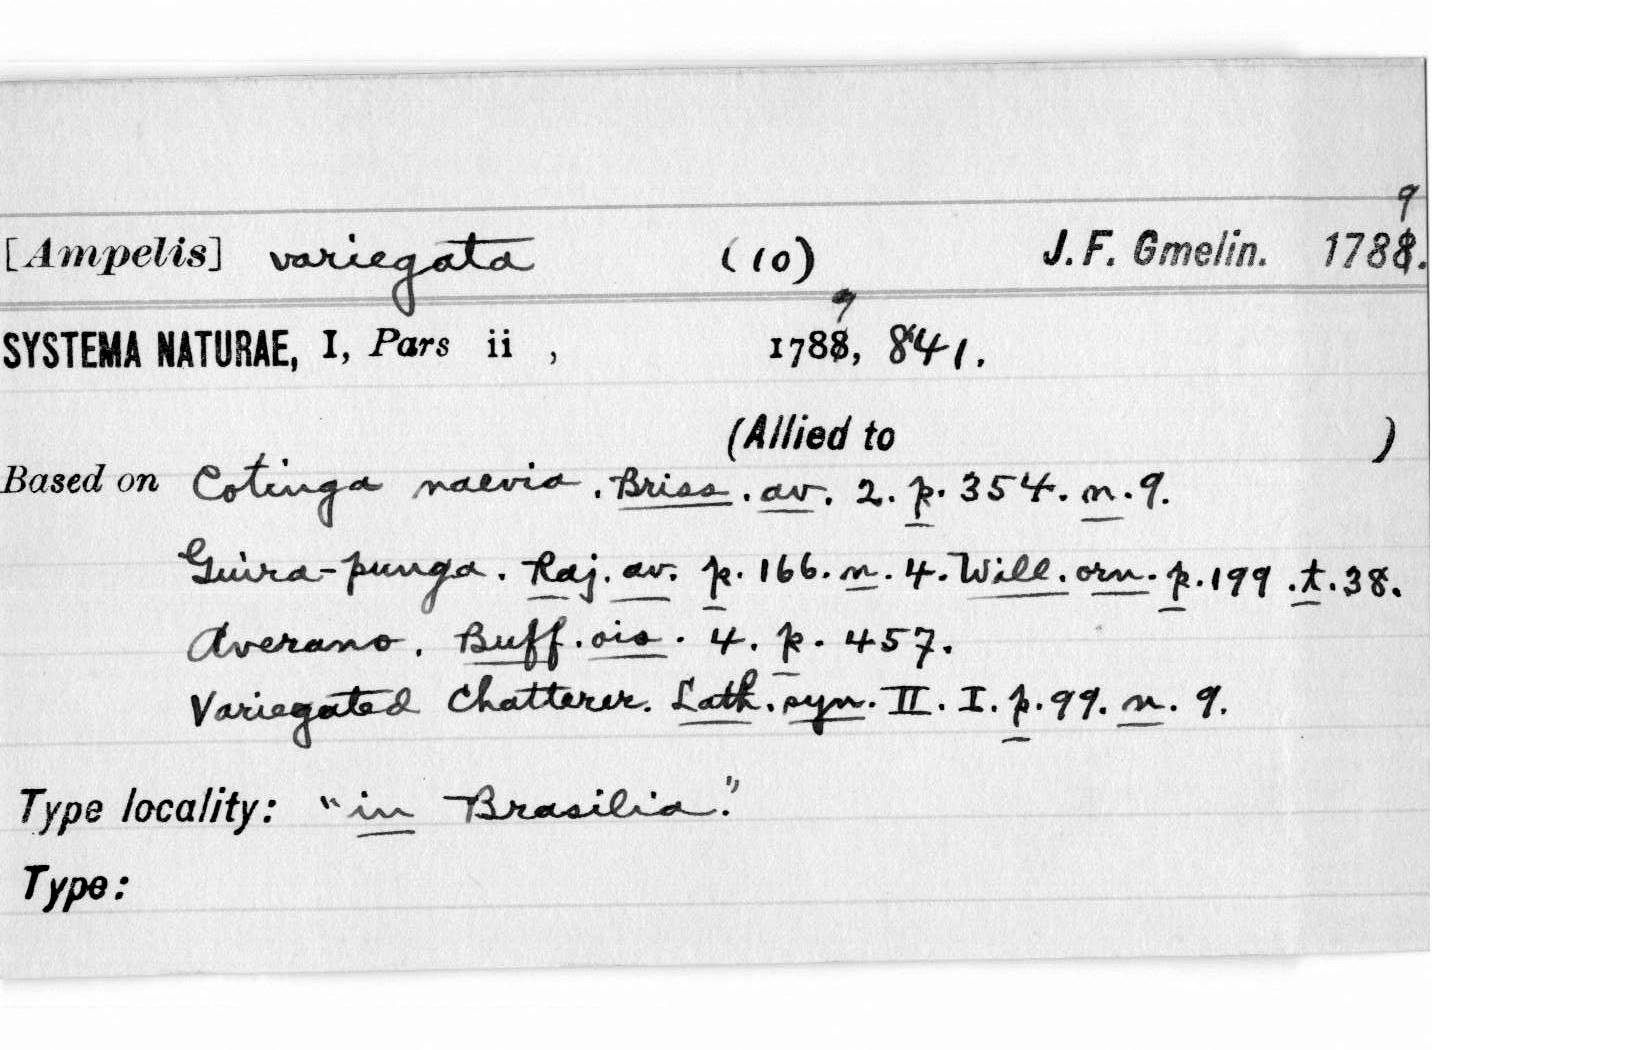 [Ampelis] variegata (10) J. F. Gmelin. 1789.
SYSTEMA NATURAE, I, Pars ii , 1789, 841.
(Allied to )
Based on Cotinga naevia. Briss. av. 2. p. 354. n. 9.
Guira-punga. Raj. av. p. 166. n. 4. Will. orn. p. 199. t. 38.
Averano. Buff. ois. 4. p. 457.
Variegated Chatterer. Lath. syn. II. I. p. 99. n. 9.
Type locality: "in Brasilia."
Type: